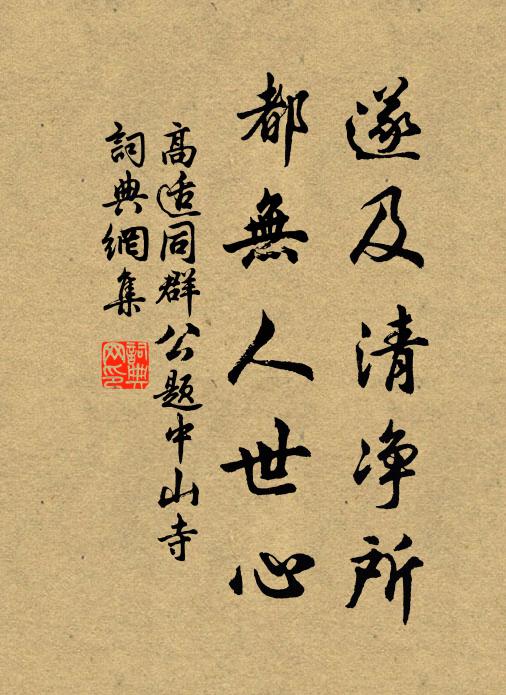 遂及清净所
都無人世心
高适同群公題中山寺
詞典網集
詞典网印